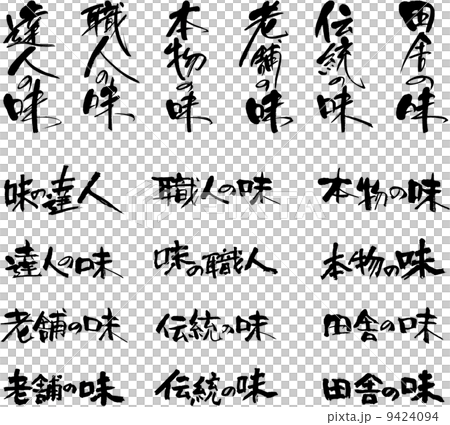 達人の味
職人の味
本物の味
老舗の味
伝統の味
田舎の味
味の達人
職人の味
本物の味
達人の味
味の職人
本物の味
老舗の味
伝統の味
田舎の味
老舗の味
伝統の味
田舎の味
pixta.jp - 9424094